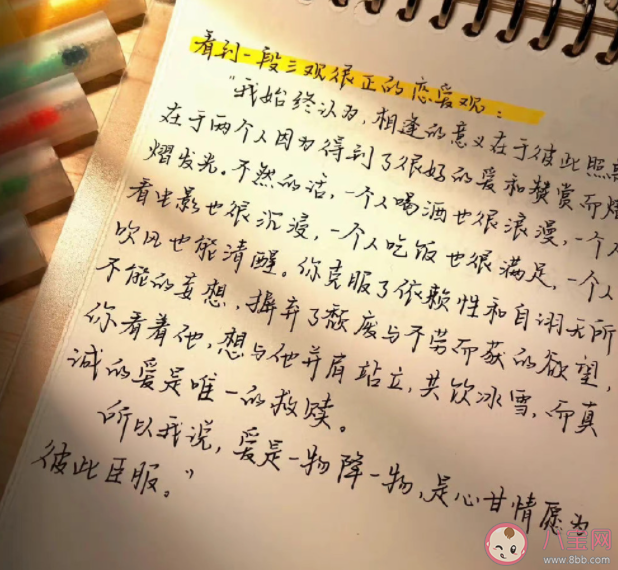 看到一段三观很正的恋爱观：
“我始终认为，相逢的意义在于彼此照亮
在于两个人因为得到了很好的爱和赞赏而熠
熠发光。不然的话，一个人喝酒也很浪漫，一个人
看电影也很沉浸，一个人吃饭也很满足，一个人
吹风也能清醒。你克服了依赖性和自诩无所
不能的妄想，摒弃了颓废与不劳而获的欲望，
你看着他，想与他并肩站立，共饮冰雪，而真
诚的爱是唯一的救赎。
所以我说，爱是一物降一物，是心甘情愿为
彼此臣服。”
八宝网
www.8bb.com